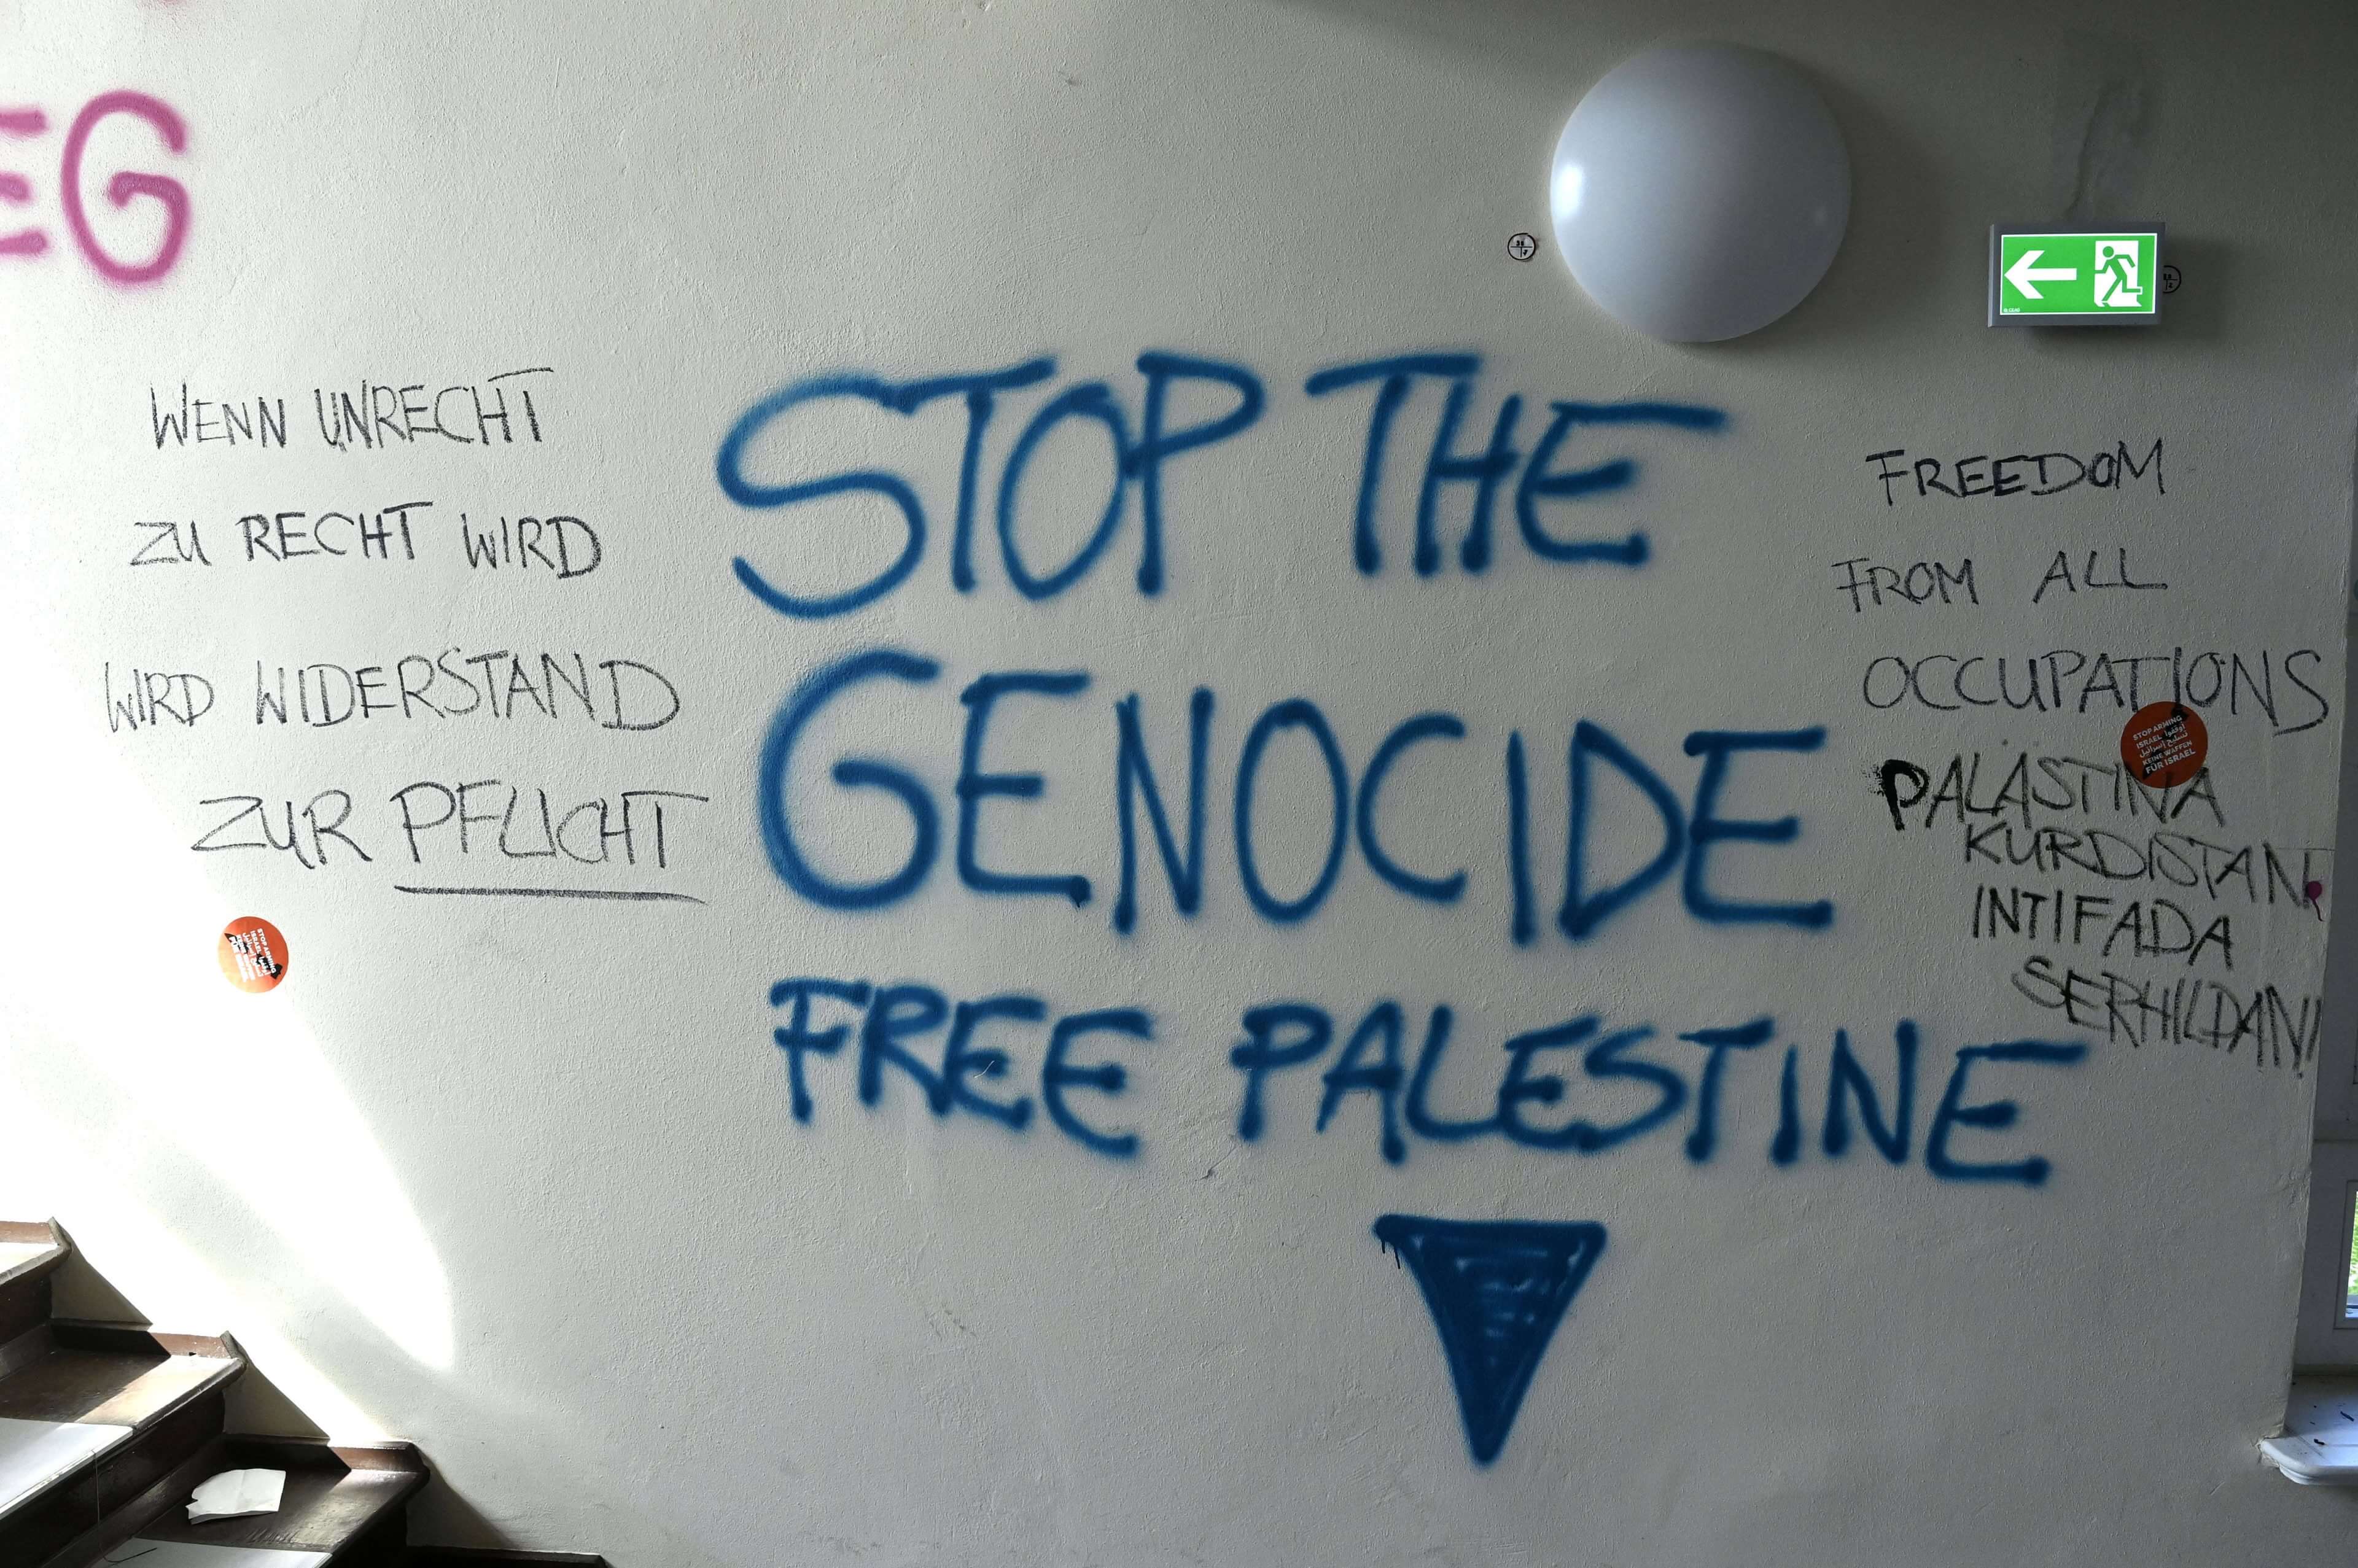 EG
WENN UNRECHT
ZU RECHT WIRD
WIRD WIDERSTAND
ZUR PFLICHT
STOP THE
GENOCIDE
FREE PALESTINE
FREEDOM
FROM ALL
OCCUPATIONS
STOP ARMING
ISRAEL أوقفوا
تسليح إسرائيل
KEINE WAFFEN
FÜR ISRAEL
PALÄSTINA
KURDISTAN
INTIFADA
SERHILDAN!
STOP ARMING